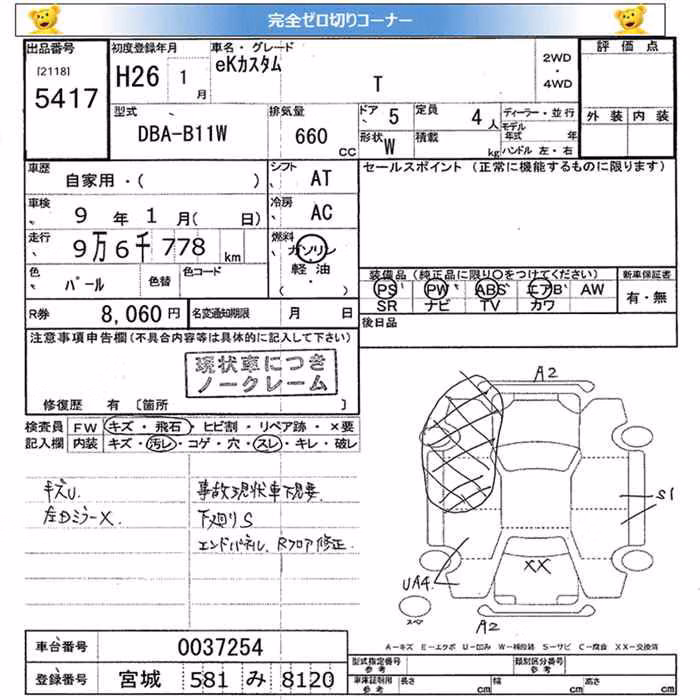 完全ゼロ切りコーナー
出品番号
[2118]
5417
初度登録年月
H26 1 月
車名・グレード
eKカスタム
T
2WD
・
4WD
評価点
外装 内装
型式
DBA-B11W
排気量
660 CC
ドア 5
定員 4 人
形状 W
積載 kg
ディーラー・並行
モデル年式 年
ハンドル 左・右
車歴
自家用・( )
シフト AT
車検
9 年 1 月( 日)
冷房 AC
走行
9万6千778 km
燃料 ガソリン
軽油
( )
色 パール
色替
色コード
R券 8,060円
名変通知期限 月 日
セールスポイント (正常に機能するものに限ります)
装備品(純正品に限り○をつけてください)
PS PW ABS エアB AW
SR ナビ TV カワ
新車保証書
有・無
後日品
注意事項申告欄(不具合内容等は具体的に記入して下さい)
現状車につき
ノークレーム
修復歴 有 [箇所 ]
検査員記入欄
FW キズ・飛石・ヒビ割・リペア跡・×要
内装 キズ・汚レ・コゲ・穴・スレ・キレ・破レ
キズU.
左Dミラー X.
事故現状車下見要
下廻りS
エンドパネル、Rフロア修正.
A2
S1
XX
UA4
スペア
A2
A-キズ E-エクボ U-凹み W-補修跡 S-サビ C-腐食 XX-交換済
車台番号 0037254
登録番号 宮城 581 み 8120
型式指定番号 参考
類別区分番号 参考
車庫証明用 参考
長さ cm 幅 cm 高さ cm